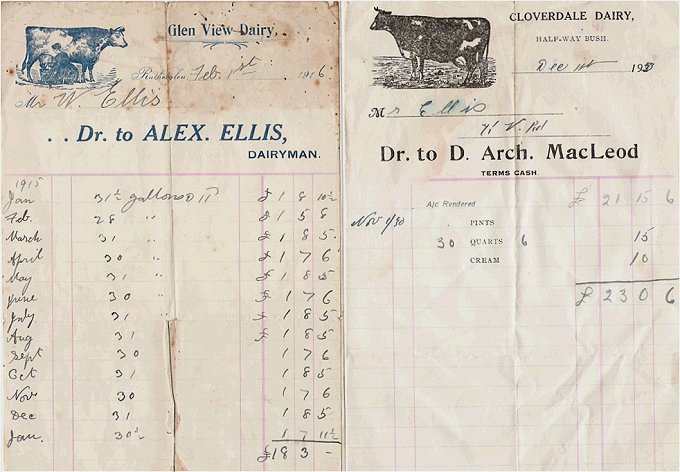 Glen View Dairy,
Feb. 1st 1916
Mr W. Ellis
. . Dr. to ALEX. ELLIS,
DAIRYMAN.
1915
Jan 31½ gallons @ 11 £ 1 8 10½
Feb. 28 " £ 1 5 8
March 31 " £ 1 8 5
April 30 " £ 1 7 6
May 31 " £ 1 8 5
June 30 " £ 1 7 6
July 31 " £ 1 8 5
Aug 31 £ 1 8 5
Sept 30 1 7 6
Oct 31 1 8 5
Nov 30 1 7 6
Dec 31 1 8 5
Jan. 30½ 1 7 11½
£18 3 -
CLOVERDALE DAIRY,
HALF-WAY BUSH.
Dec 1st 19
Mr Ellis
Dr. to D. Arch. MacLeod
TERMS CASH.
A/c Rendered £ 21 15 6
Nov 1/30 PINTS
30 QUARTS 6 15
CREAM 10
£ 23 0 6